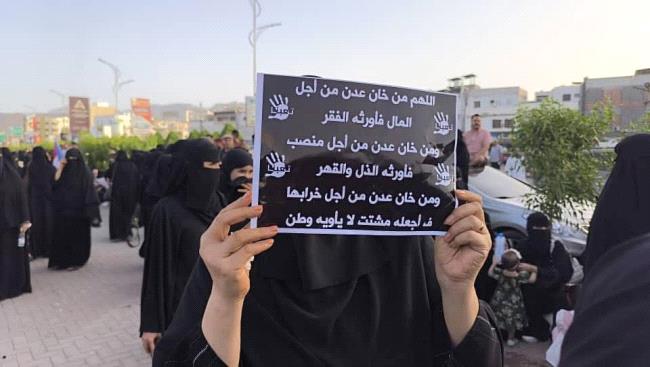 اللهم من خان عدن من أجل
المال فأورثه الفقر
ومن خان عدن من أجل منصب
فأورثه الذل والقهر
ومن خان عدن من أجل خرابها
ف أجعله مشتت لا يأويه وطن